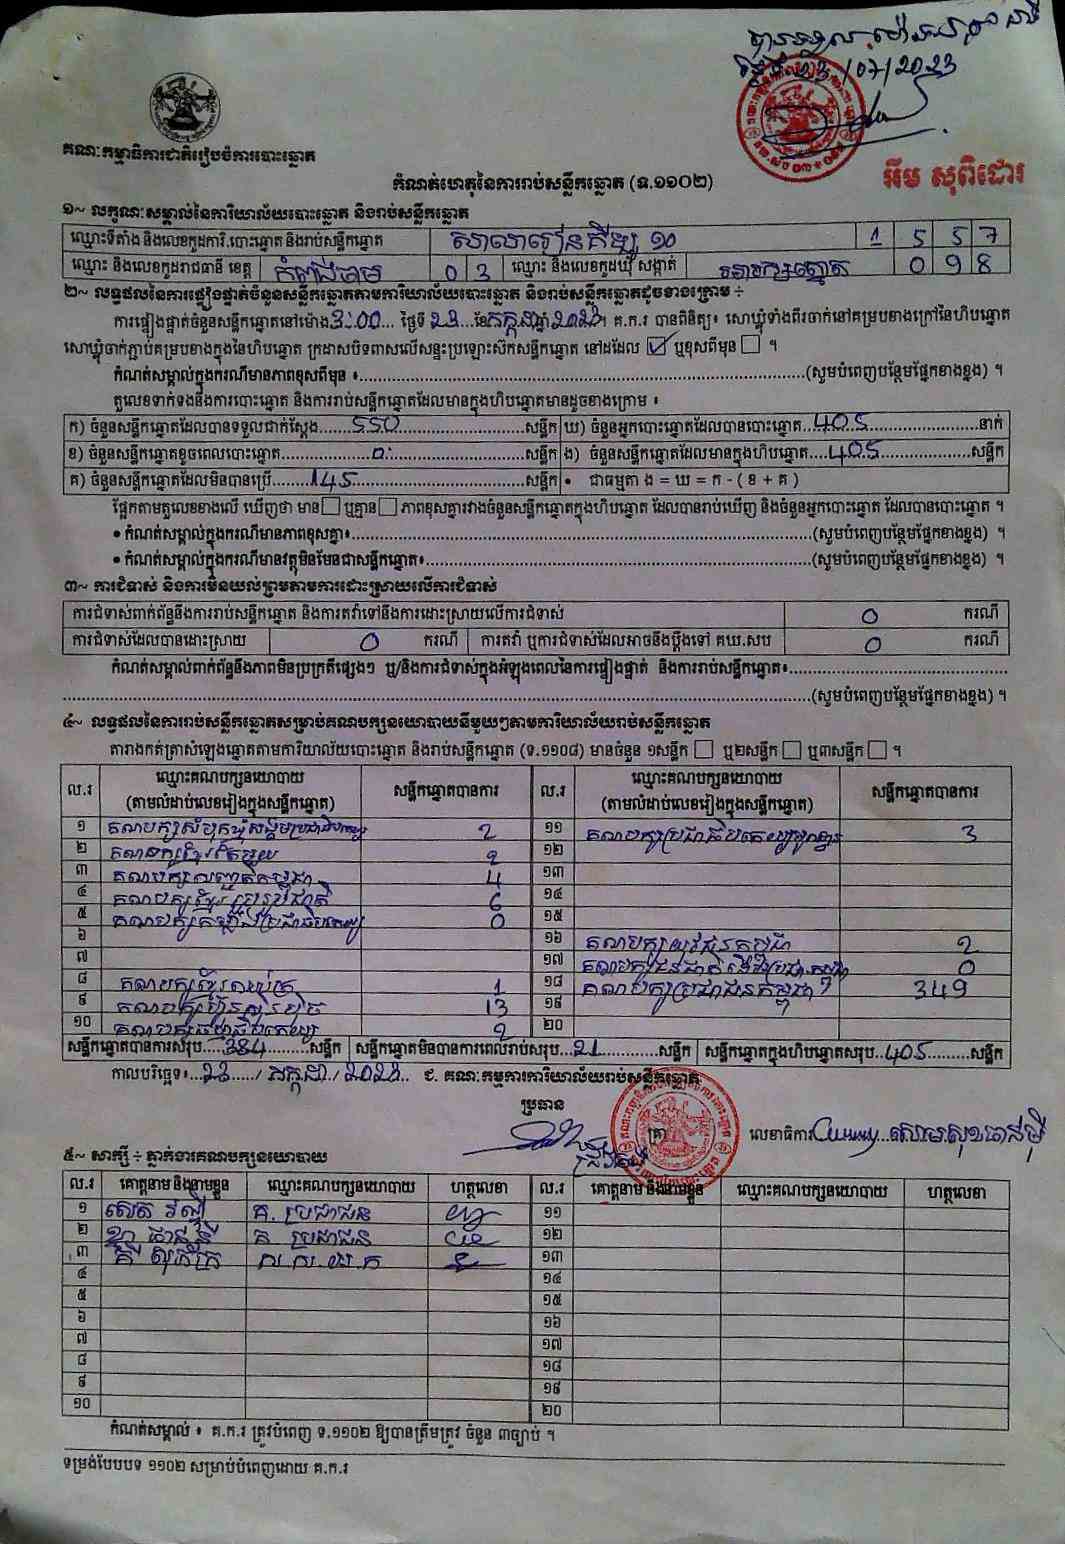 ២៣/07/2023
អ៊ឹម សុពិដោរ
គណៈកម្មាធិការជាតិរៀបចំការបោះឆ្នោត
កំណត់ហេតុនៃការរាប់សន្លឹកឆ្នោត (ទ.១១០២)
១~ លក្ខណៈសម្គាល់នៃការិយាល័យបោះឆ្នោត និងរាប់សន្លឹកឆ្នោត
ឈ្មោះទីតាំង និងលេខកូដការិ.បោះឆ្នោត និងរាប់សន្លឹកឆ្នោត សាលារៀន 1 5 5 7
ឈ្មោះ និងលេខកូដរាជធានី ខេត្ត កំពង់ចាម 0 3 ឈ្មោះ និងលេខកូដឃុំ សង្កាត់ 0 9 8
២~ លទ្ធផលនៃការផ្ទៀងផ្ទាត់ចំនួនសន្លឹកឆ្នោតតាមការិយាល័យបោះឆ្នោត និងរាប់សន្លឹកឆ្នោតដូចខាងក្រោម ÷
ការផ្ទៀងផ្ទាត់ចំនួនសន្លឹកឆ្នោតនៅម៉ោង 3:00 ថ្ងៃទី ២៣ ខែ កក្កដា ឆ្នាំ ២០២៣។ គ.ក.រ បានពិនិត្យ៖ សោឃ្លុំទាំងពីរចាក់នៅគម្របខាងក្រៅនៃហិបឆ្នោត
សោឃ្លុំចាក់ភ្ជាប់គម្របខាងក្នុងនៃហិបឆ្នោត ក្រដាសបិទពាសលើសន្ទះប្រឡោះស៊កសន្លឹកឆ្នោត នៅដដែល ☑ ឬខុសពីមុន ☐ ។
កំណត់សម្គាល់ក្នុងករណីមានភាពខុសពីមុន ៖ (សូមបំពេញបន្ថែមផ្នែកខាងខ្នង) ។
តួលេខទាក់ទងនឹងការបោះឆ្នោត និងការរាប់សន្លឹកឆ្នោតដែលមានក្នុងហិបឆ្នោតមានដូចខាងក្រោម ៖
ក) ចំនួនសន្លឹកឆ្នោតដែលបានទទួលជាក់ស្តែង 550 សន្លឹក ឃ) ចំនួនអ្នកបោះឆ្នោតដែលបានបោះឆ្នោត 405 នាក់
ខ) ចំនួនសន្លឹកឆ្នោតខូចពេលបោះឆ្នោត 0 សន្លឹក ង) ចំនួនសន្លឹកឆ្នោតដែលមានក្នុងហិបឆ្នោត 405 សន្លឹក
គ) ចំនួនសន្លឹកឆ្នោតដែលមិនបានប្រើ 145 សន្លឹក • ជាធម្មតា ង = ឃ = ក - ( ខ + គ )
ផ្អែកតាមតួលេខខាងលើ ឃើញថា មាន ☐ ឬគ្មាន ☐ ភាពខុសគ្នារវាងចំនួនសន្លឹកឆ្នោតក្នុងហិបឆ្នោត ដែលបានរាប់ឃើញ និងចំនួនអ្នកបោះឆ្នោត ដែលបានបោះឆ្នោត ។
• កំណត់សម្គាល់ក្នុងករណីមានភាពខុសគ្នា៖ (សូមបំពេញបន្ថែមផ្នែកខាងខ្នង) ។
• កំណត់សម្គាល់ក្នុងករណីមានវត្ថុមិនមែនជាសន្លឹកឆ្នោត៖ (សូមបំពេញបន្ថែមផ្នែកខាងខ្នង) ។
៣~ ការជំទាស់ និងការមិនយល់ព្រមតាមការដោះស្រាយលើការជំទាស់
ការជំទាស់ពាក់ព័ន្ធនឹងការរាប់សន្លឹកឆ្នោត និងការតវ៉ាទៅនឹងការដោះស្រាយលើការជំទាស់ 0 ករណី
ការជំទាស់ដែលបានដោះស្រាយ 0 ករណី ការតវ៉ា ឬការជំទាស់ដែលអាចនឹងប្តឹងទៅ គឃ.សប 0 ករណី
កំណត់សម្គាល់ពាក់ព័ន្ធនឹងភាពមិនប្រក្រតីផ្សេងៗ ឬ/និងការជំទាស់ក្នុងអំឡុងពេលនៃការផ្ទៀងផ្ទាត់ និងការរាប់សន្លឹកឆ្នោត៖
(សូមបំពេញបន្ថែមផ្នែកខាងខ្នង) ។
៤~ លទ្ធផលនៃការរាប់សន្លឹកឆ្នោតសម្រាប់គណបក្សនយោបាយនីមួយៗតាមការិយាល័យរាប់សន្លឹកឆ្នោត
តារាងកត់ត្រាសំឡេងឆ្នោតតាមការិយាល័យបោះឆ្នោត និងរាប់សន្លឹកឆ្នោត (ទ.១១០៨) មានចំនួន ១សន្លឹក ☐ ឬ២សន្លឹក ☐ ឬ៣សន្លឹក ☐ ។
ល.រ ឈ្មោះគណបក្សនយោបាយ (តាមលំដាប់លេខរៀងក្នុងសន្លឹកឆ្នោត) សន្លឹកឆ្នោតបានការ ល.រ ឈ្មោះគណបក្សនយោបាយ (តាមលំដាប់លេខរៀងក្នុងសន្លឹកឆ្នោត) សន្លឹកឆ្នោតបានការ
១ គណបក្សសំបុកឃ្មុំសង្គមប្រជាធិបតេយ្យ 2 ១១ គណបក្សប្រជាធិបតេយ្យមូលដ្ឋាន 3
២ គណបក្សខ្មែរតែមួយ 2 ១២
៣ គណបក្សសញ្ជាតិកម្ពុជា 4 ១៣
៤ គណបក្សខ្មែររួបរួមជាតិ 6 ១៤
៥ គណបក្សកម្លាំងប្រជាធិបតេយ្យ 0 ១៥
៦ ១៦ គណបក្សយុវជនកម្ពុជា 2
៧ ១៧ គណបក្សជនជាតិដើមប្រជាធិបតេយ្យកម្ពុជា 0
៨ គណបក្សខ្មែរឈប់ក្រ 1 ១៨ គណបក្សប្រជាជនកម្ពុជា 349
៩ គណបក្សហ៊្វុនស៊ិនប៉ិច 13 ១៩
១០ គណបក្សធម្មាធិបតេយ្យ 2 ២០
សន្លឹកឆ្នោតបានការសរុប 384 សន្លឹក សន្លឹកឆ្នោតមិនបានការពេលរាប់សរុប 21 សន្លឹក សន្លឹកឆ្នោតក្នុងហិបឆ្នោតសរុប 405 សន្លឹក
កាលបរិច្ឆេទ៖ ២៣ / កក្កដា / ២០២៣ ជ. គណៈកម្មការការិយាល័យរាប់សន្លឹកឆ្នោត
ប្រធាន
ត្រា លេខាធិការ
៥~ សាក្សី ÷ ភ្នាក់ងារគណបក្សនយោបាយ
ល.រ គោត្តនាម និងនាមខ្លួន ឈ្មោះគណបក្សនយោបាយ ហត្ថលេខា ល.រ គោត្តនាម និងនាមខ្លួន ឈ្មោះគណបក្សនយោបាយ ហត្ថលេខា
១ គ. ប្រជាជន ១១
២ គ ប្រជាជន ១២
៣ ១៣
៤ ១៤
៥ ១៥
៦ ១៦
៧ ១៧
៨ ១៨
៩ ១៩
១០ ២០
កំណត់សម្គាល់ ៖ គ.ក.រ ត្រូវបំពេញ ទ.១១០២ ឱ្យបានត្រឹមត្រូវ ចំនួន ៣ច្បាប់ ។
ទម្រង់បែបបទ ១១០២ សម្រាប់បំពេញដោយ គ.ក.រ